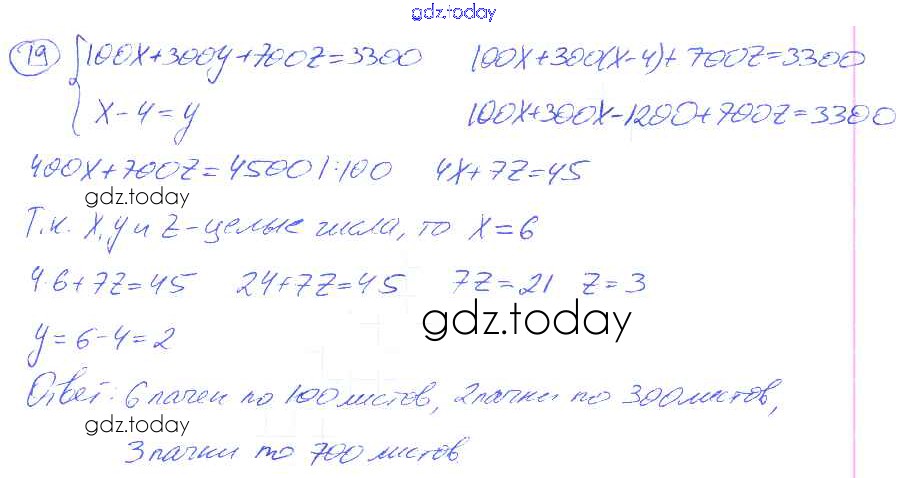 gdz.today
19 { 100x+300y+700z=3300    100x+300(x-4)+700z=3300
x-4=y    100x+300x-1200+700z=3300
400x+700z=4500 |:100    4x+7z=45
gdz.today
Т.к. x, y и z-целые числа, то x=6
4·6+7z=45    24+7z=45    7z=21    z=3
gdz.today
y=6-4=2
Ответ: 6 пачек по 100 листов, 2 пачки по 300 листов,
gdz.today
3 пачки по 700 листов